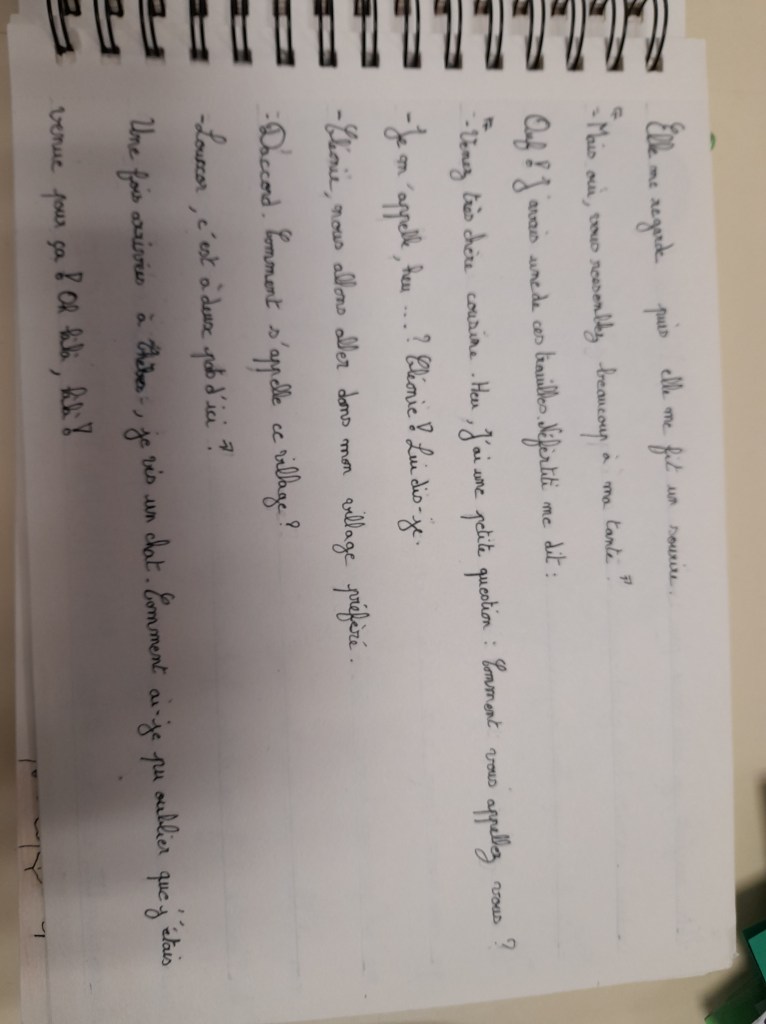 Elle me regarde puis elle me fit un sourire.
"- Mais oui, vous ressemblez beaucoup à ma tante."
Ouf ! J'avais une de ces trouilles. Néfertiti me dit :
"- Venez très chère cousine. Heu, j'ai une petite question : Comment vous appellez vous ?
- Je m'appelle, heu ... ? Cléonie ! Lui dis-je.
- Cléonie, nous allons aller dans mon village préféré.
- D'accord. Comment s'appelle ce village ?
- Louxor, c'est à deux pas d'ici."
Une fois arrivées à , je vis un chat. Comment ai-je pu oublier que j'étais
venue pour ça ! Oh lala, lala !